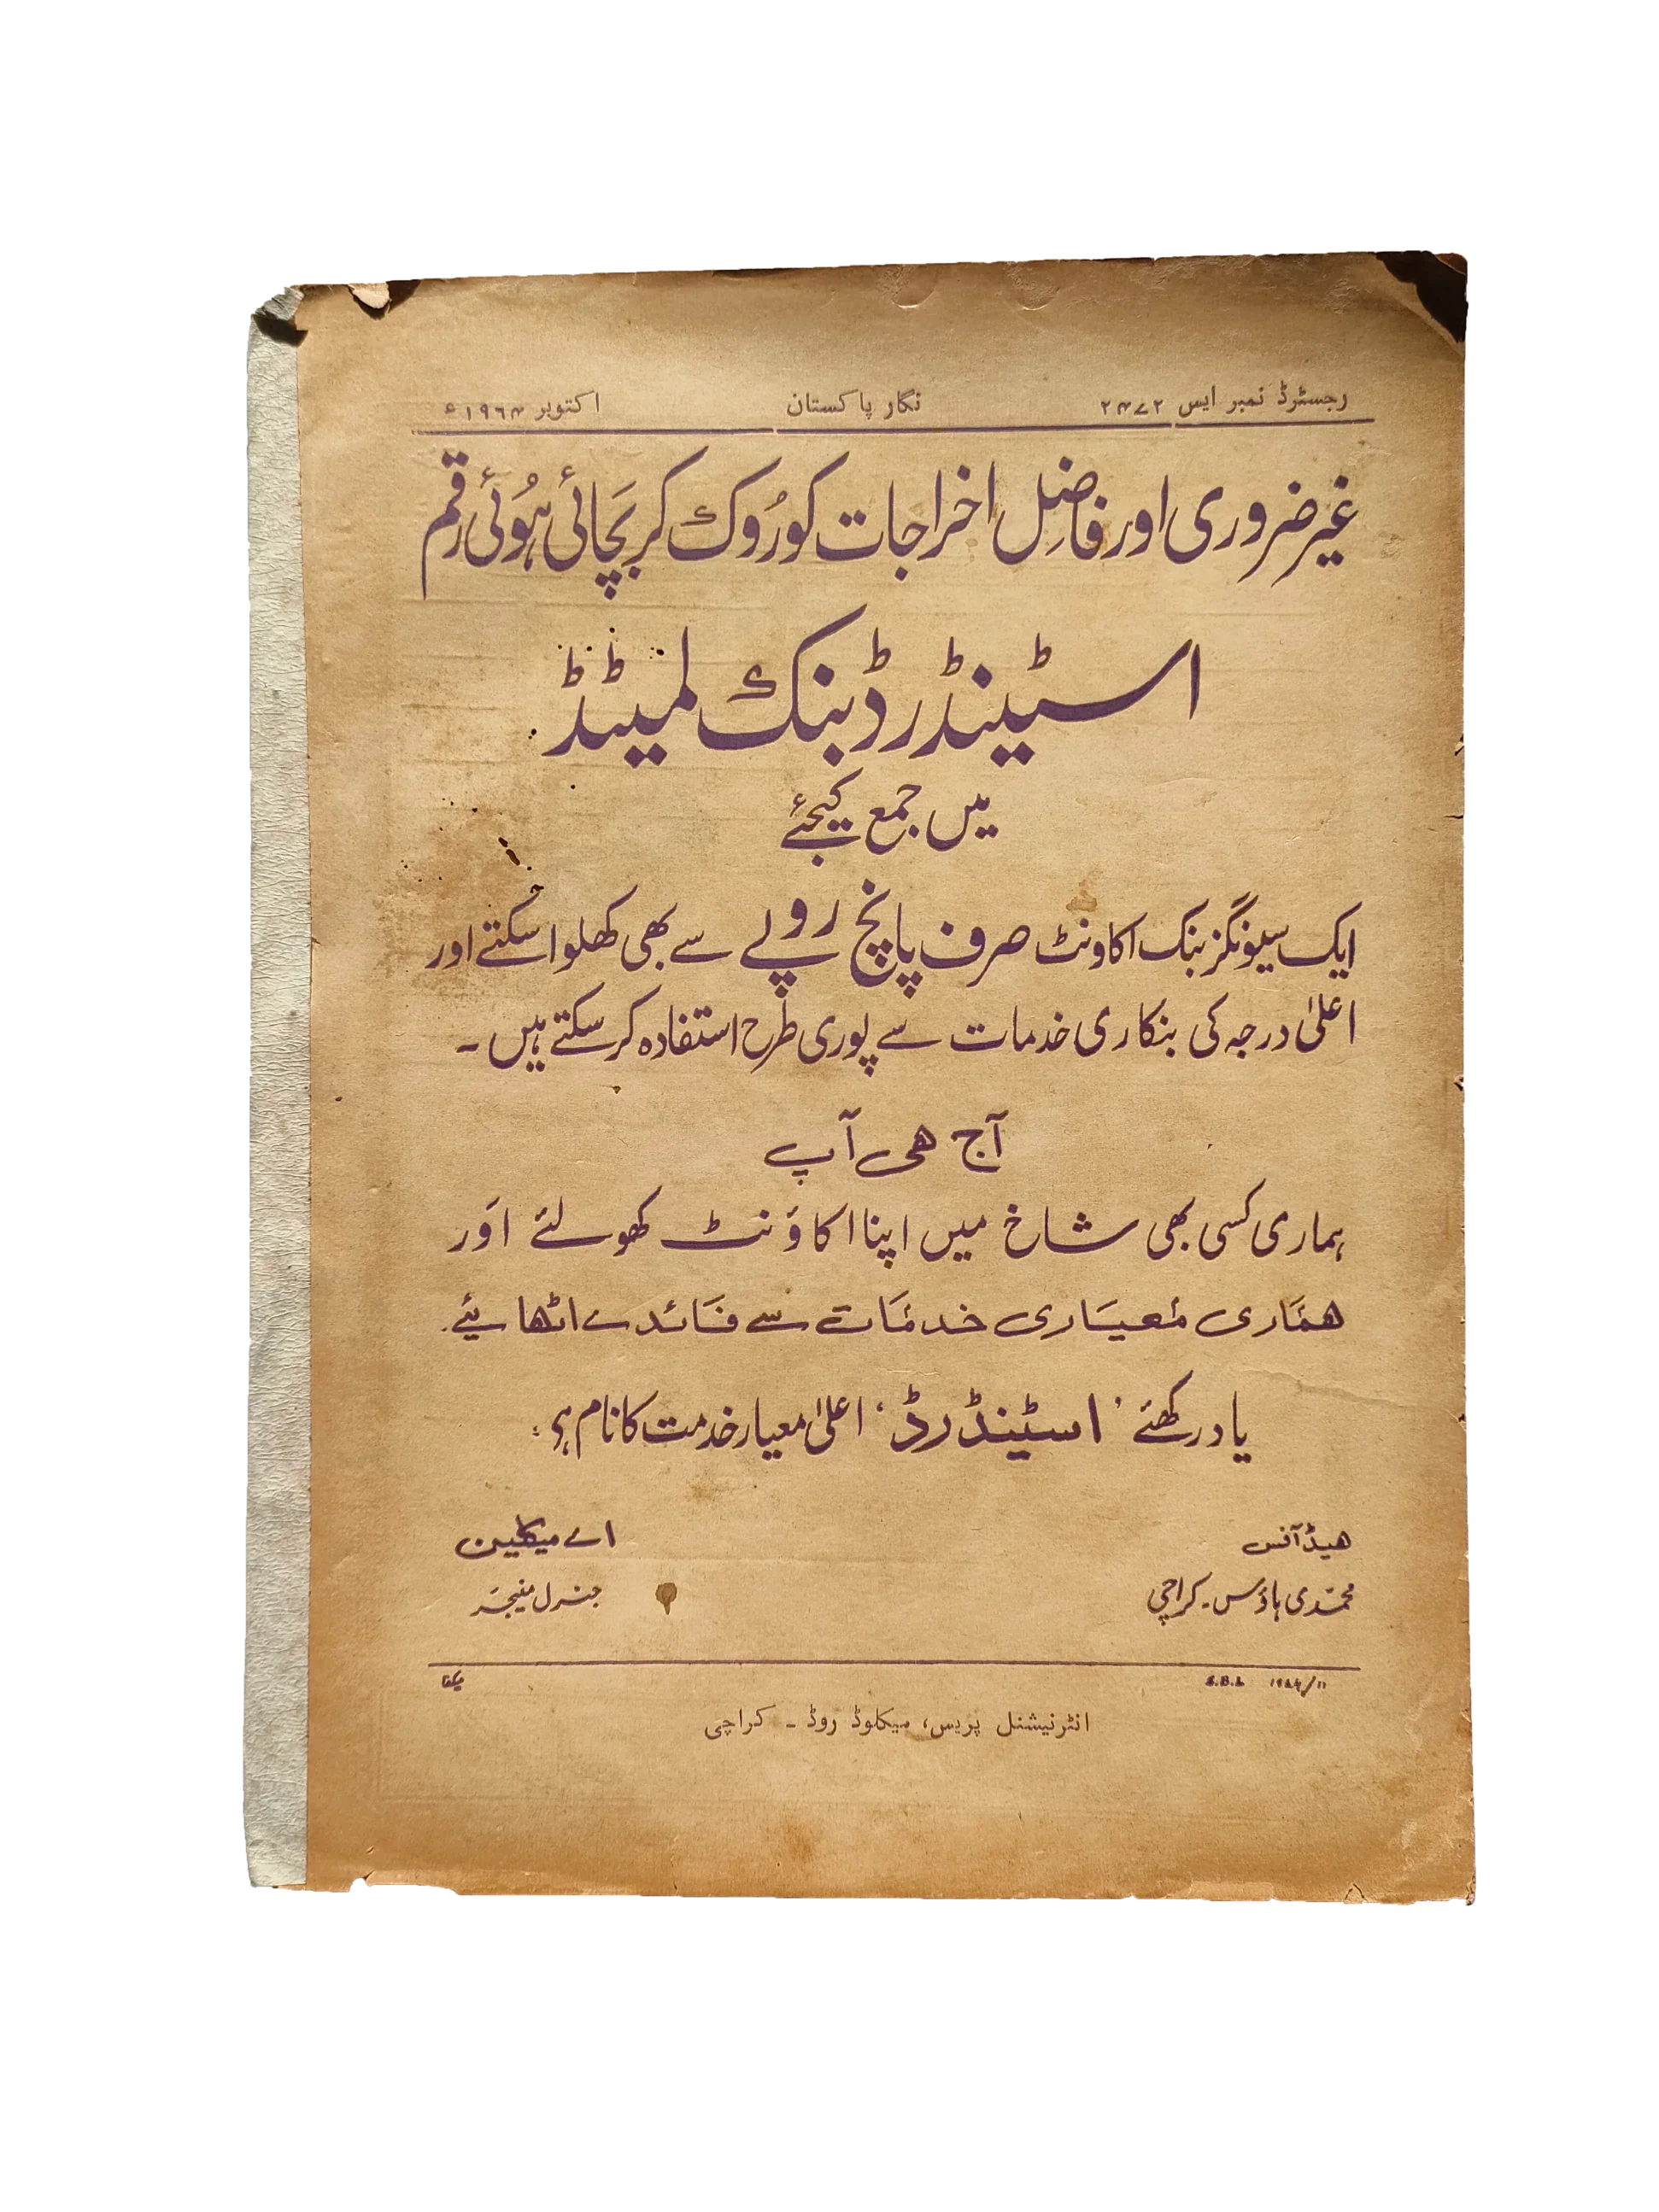 رجسٹرڈ نمبر ایس ۲۴۷۲ نگار پاکستان اکتوبر ۱۹۶۴ء
غیر ضروری اور فاضِل اخراجات کو رُوک کر بَچائی ہُوئی رقم
اسٹینڈرڈ بنک لمیٹڈ
میں جمع کیجئے
ایک سیونگز بنک اکاونٹ صرف پانچ روپے سے بھی کھلوا سکتے اور
اعلیٰ درجہ کی بنکاری خدمات سے پوری طرح استفادہ کر سکتے ہیں ۔
آج ھی آپ
ہماری کسی بھی شاخ میں اپنا اکاؤنٹ کھولئے اور
ھمَاری مُعیَاری خدمَات سے فَائدے اٹھایئے.
یاد رکھئے ' اسٹینڈرڈ ' اعلیٰ معیار خدمت کا نام ہے
ھیڈ آفس اے میکلین
محمّدی ہاؤس۔ کراچی جنرل منیجر
S.B.L
انٹرنیشنل پریس، میکلوڈ روڈ ۔ کراچی